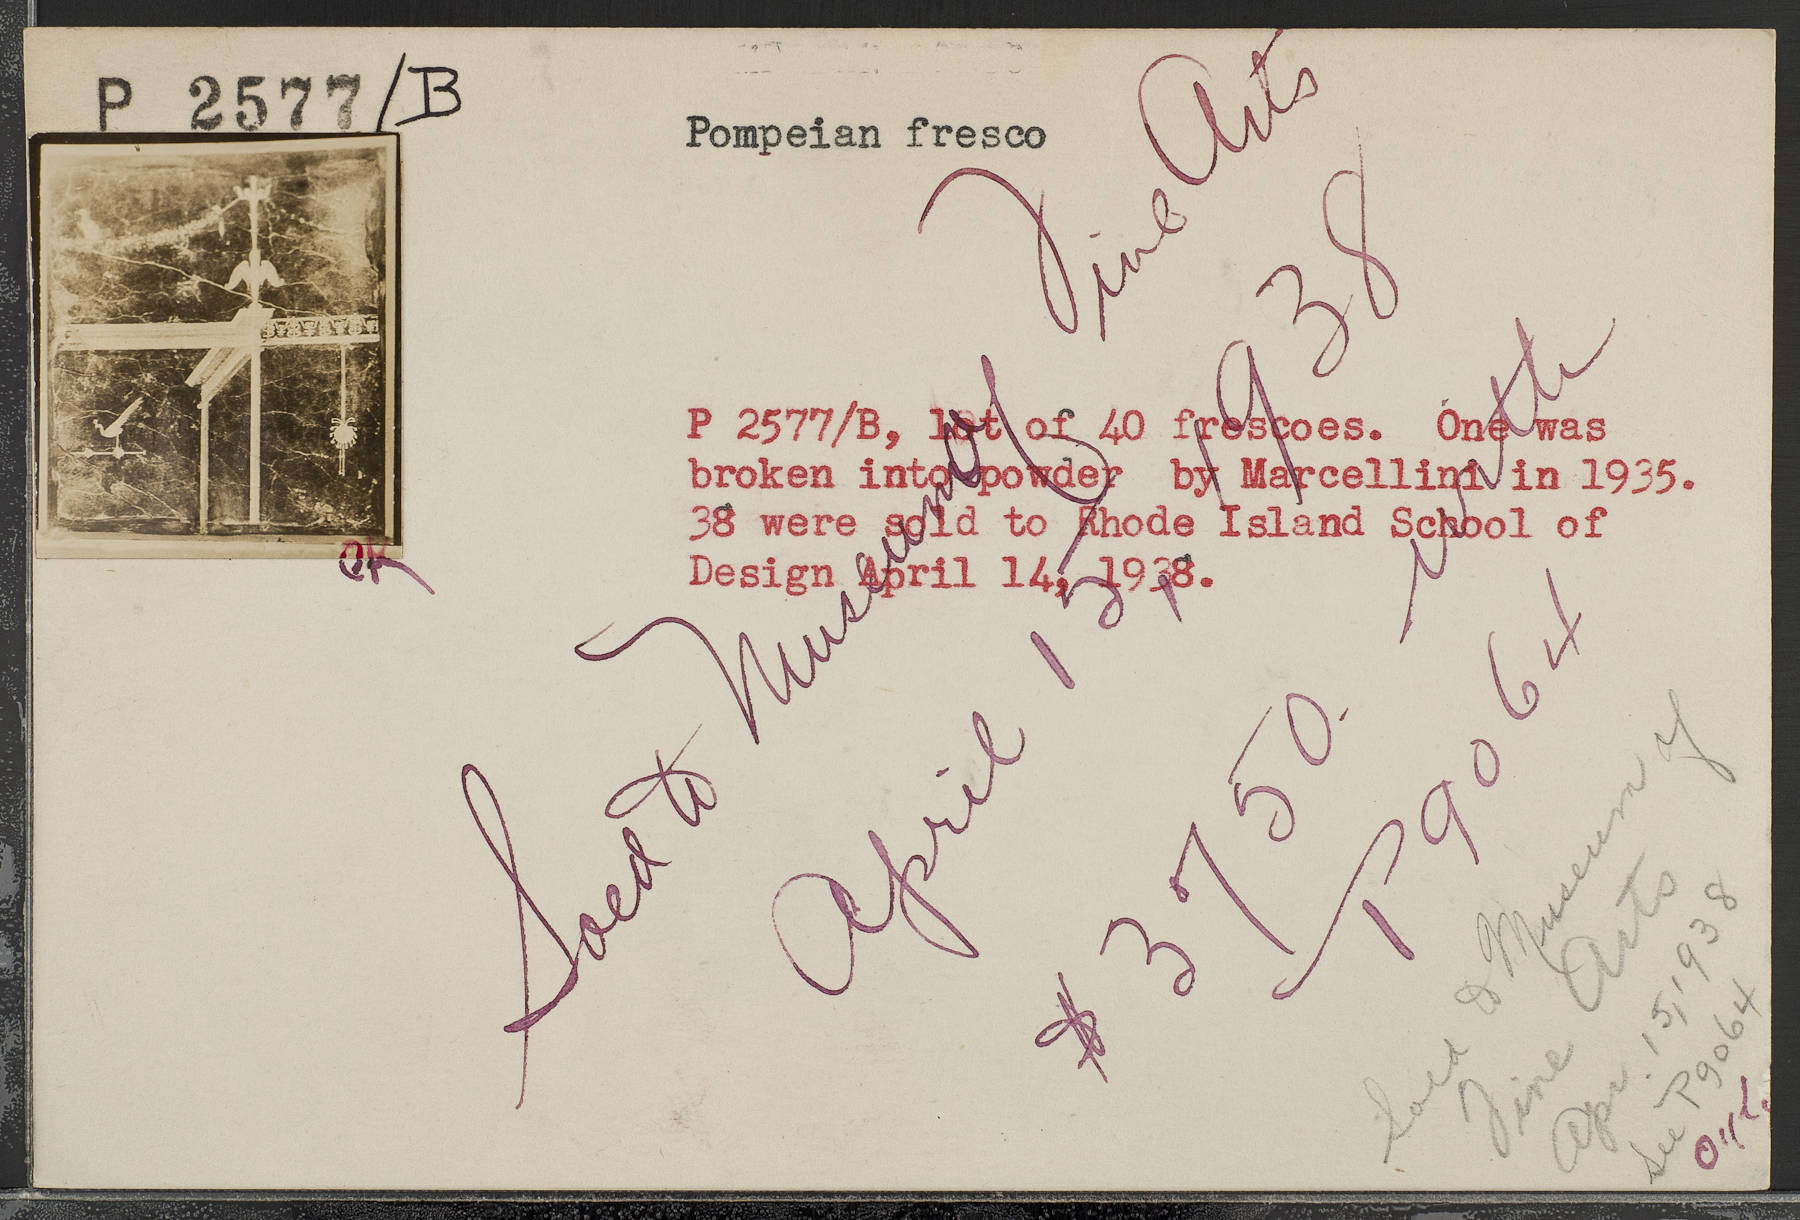 P 2577/B
Pompeian fresco
P 2577/B, lot of 40 frescoes. One was
broken into powder by Marcellini in 1935.
38 were sold to Rhode Island School of
Design April 14, 1938.
OK
Sold to Museum of Fine Arts
April 15, 1938
$3750. with
P9064
Sold to Museum of
Fine Arts
Apr. 15, 1938
See P9064